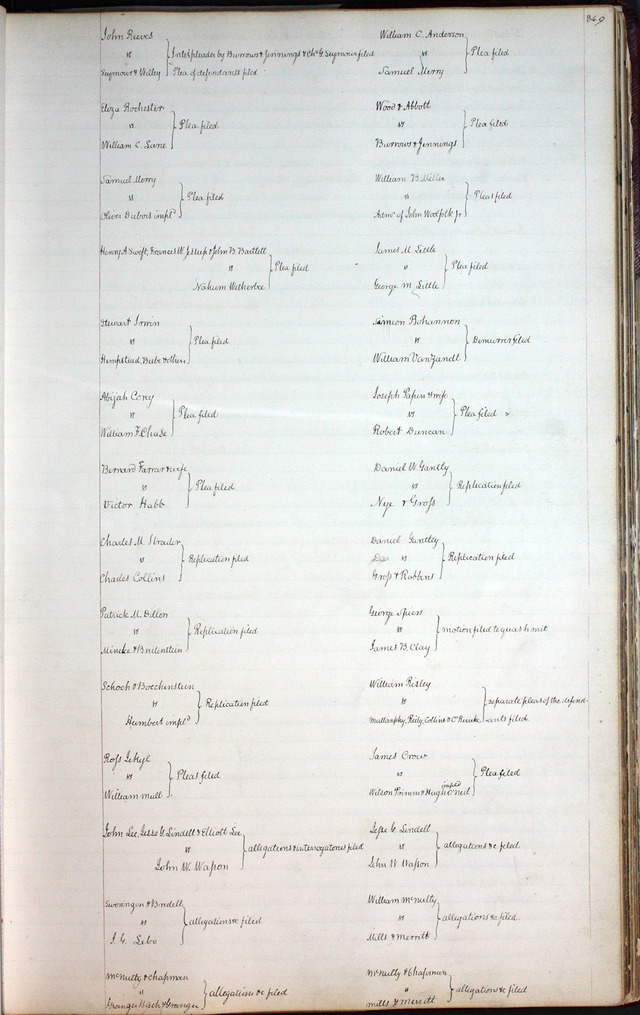 349
John Reeves
vs
Seymour & Willey
Interpleader by Burrows & Jennings & Chs G. Seymour filed
Plea of defendants filed
Eliza Rochester
vs
William C. Lane
Plea filed
Samuel Merry
vs
Oliver Dubois impld
Plea filed
Henry A Swift, Frances W. Jessup & John B. Bartlett
vs
Nahum Wetherbee
Plea filed
Stewart Irwin
vs
Hempstead, Beebe & others
Plea filed
Abijah Corey
vs
William F. Chase
Plea filed
Bernard Farrar & wife
vs
Victor Habb
Plea filed
Charles M. Strader
vs
Charles Collins
Replication filed
Patrick M. Dillon
vs
Mincke & Breitenstein
Replication filed
Schoch & Boechenstein
vs
Humbert impld
Replication filed
Ross Jekyl
vs
William Mull
Pleas filed
John Lee, Jesse G Lindell & Elliott Lee
vs
John W. Wasson
allegations & interrogatories filed
Sweringen & Bredell
vs
Lebo
allegations &c filed
McNulty & Chapman
"
Granger Birch & Granger
allegations &c filed
William C. Anderson
vs
Samuel Merry
Plea filed
Wood & Abbott
vs
Burrows & Jennings
Plea filed
William B. Miller
vs
Admr of John Woolfolk jr
Pleas filed
James M. Little
"
George M. Little
Plea filed
Simeon Bohannon
vs
William VanZandt
Demurrer filed
Joseph Papin & wife
vs
Robert Duncan
Plea filed
Daniel W. Gantly
vs
Nye & Gross
Replication filed
Daniel Gantley
Do vs
Gross & Robbins
Replication filed
George Speers
vs
James B. Clay
motion filed to quash writ
William Risley
vs
Mullanphy, Reily, Collins & O'Rourke
separate pleas of the defend-
ants filed.
James Crow
vs
Wilson Primm & Hugh O'neil impld
Plea filed
Jesse G. Lindell
vs
John W. Wasson
allegations &c filed
William McNulty
vs
Mills & Merritt
allegations &c filed.
McNulty & Chapman
"
Mills & Merritt
allegations &c filed